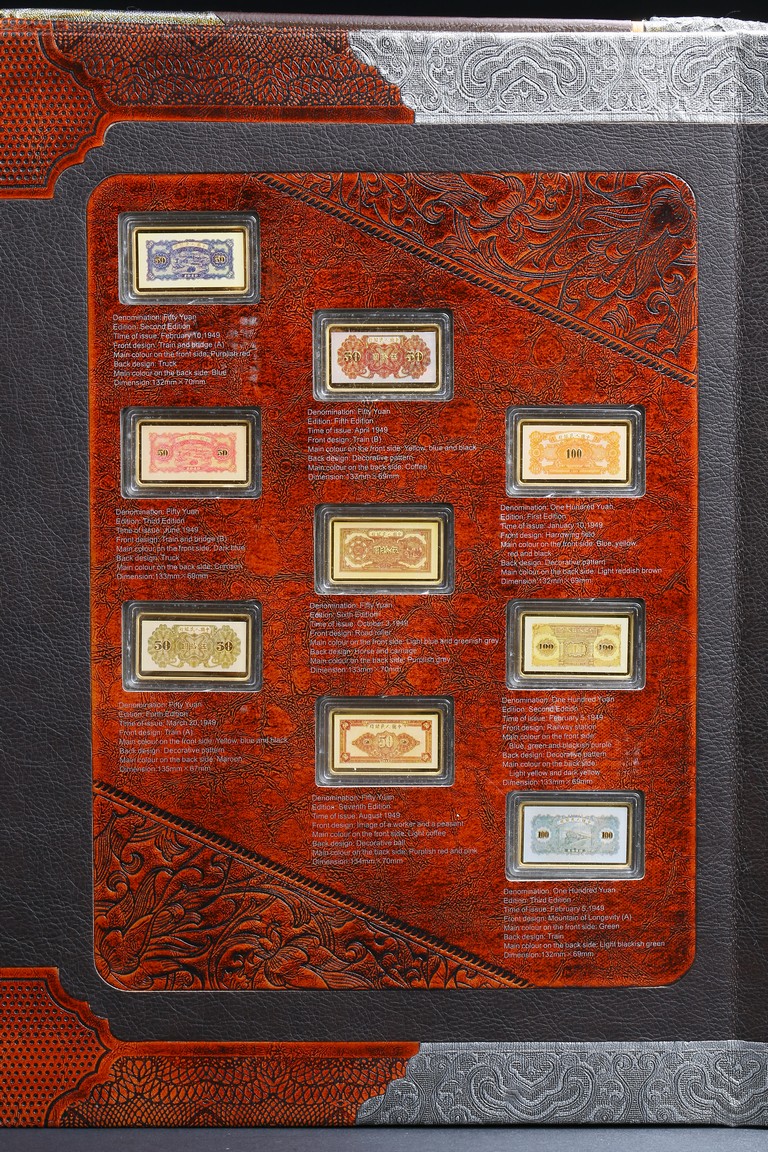 50 50
Denomination: Fifty Yuan
Edition: Second Edition
Time of issue: February 10,1949
Front design: Train and bridge (A)
Main colour on the front side: Purplish red
Back design: Truck
Main colour on the back side: Blue
Dimension: 132mm×70mm
50 50
Denomination: Fifty Yuan
Edition: Third Edition
Time of issue: June 1949
Front design: Train and bridge (B)
Main colour on the front side: Dark blue
Back design: Truck
Main colour on the back side: Crimson
Dimension: 133mm×69mm
50 50
Denomination: Fifty Yuan
Edition: Forth Edition
Time of issue: March 20,1949
Front design: Train (A)
Main colour on the front side: Yellow, blue and black
Back design: Decorative pattern
Main colour on the back side: Maroon
Dimension: 135mm×67mm
50 50
Denomination: Fifty Yuan
Edition: Fifth Edition
Time of issue: April 1949
Front design: Train (B)
Main colour on the front side: Yellow, blue and black
Back design: Decorative pattern
Main colour on the back side: Coffee
Dimension: 133mm×69mm
Denomination: Fifty Yuan
Edition: Sixth Edition
Time of issue: October 3,1949
Front design: Road roller
Main colour on the front side: Light blue and greenish grey
Back design: Horse and carriage
Main colour on the back side: Purplish grey
Dimension: 133mm×70mm
50
Denomination: Fifty Yuan
Edition: Seventh Edition
Time of issue: August 1949
Front design: Image of a worker and a peasant
Main colour on the front side: Light coffee
Back design: Decorative ball
Main colour on the back side: Purplish red and pink
Dimension: 134mm×70mm
100
Denomination: One Hundred Yuan
Edition: First Edition
Time of issue: January 10,1949
Front design: Harrowing field
Main colour on the front side: Blue, yellow,
red and black
Back design: Decorative pattern
Main colour on the back side: Light reddish brown
Dimension: 132mm×69mm
100 100
Denomination: One Hundred Yuan
Edition: Second Edition
Time of issue: February 5,1949
Front design: Railway station
Main colour on the front side:
Blue, green and blackish purple
Back design: Decorative pattern
Main colour on the back side:
Light yellow and dark yellow
Dimension: 132mm×69mm
100 100
Denomination: One Hundred Yuan
Edition: Third Edition
Time of issue: February 5,1949
Front design: Mountain of Longevity (A)
Main colour on the front side: Green
Back design: Train
Main colour on the back side: Light blackish green
Dimension: 132mm×69mm